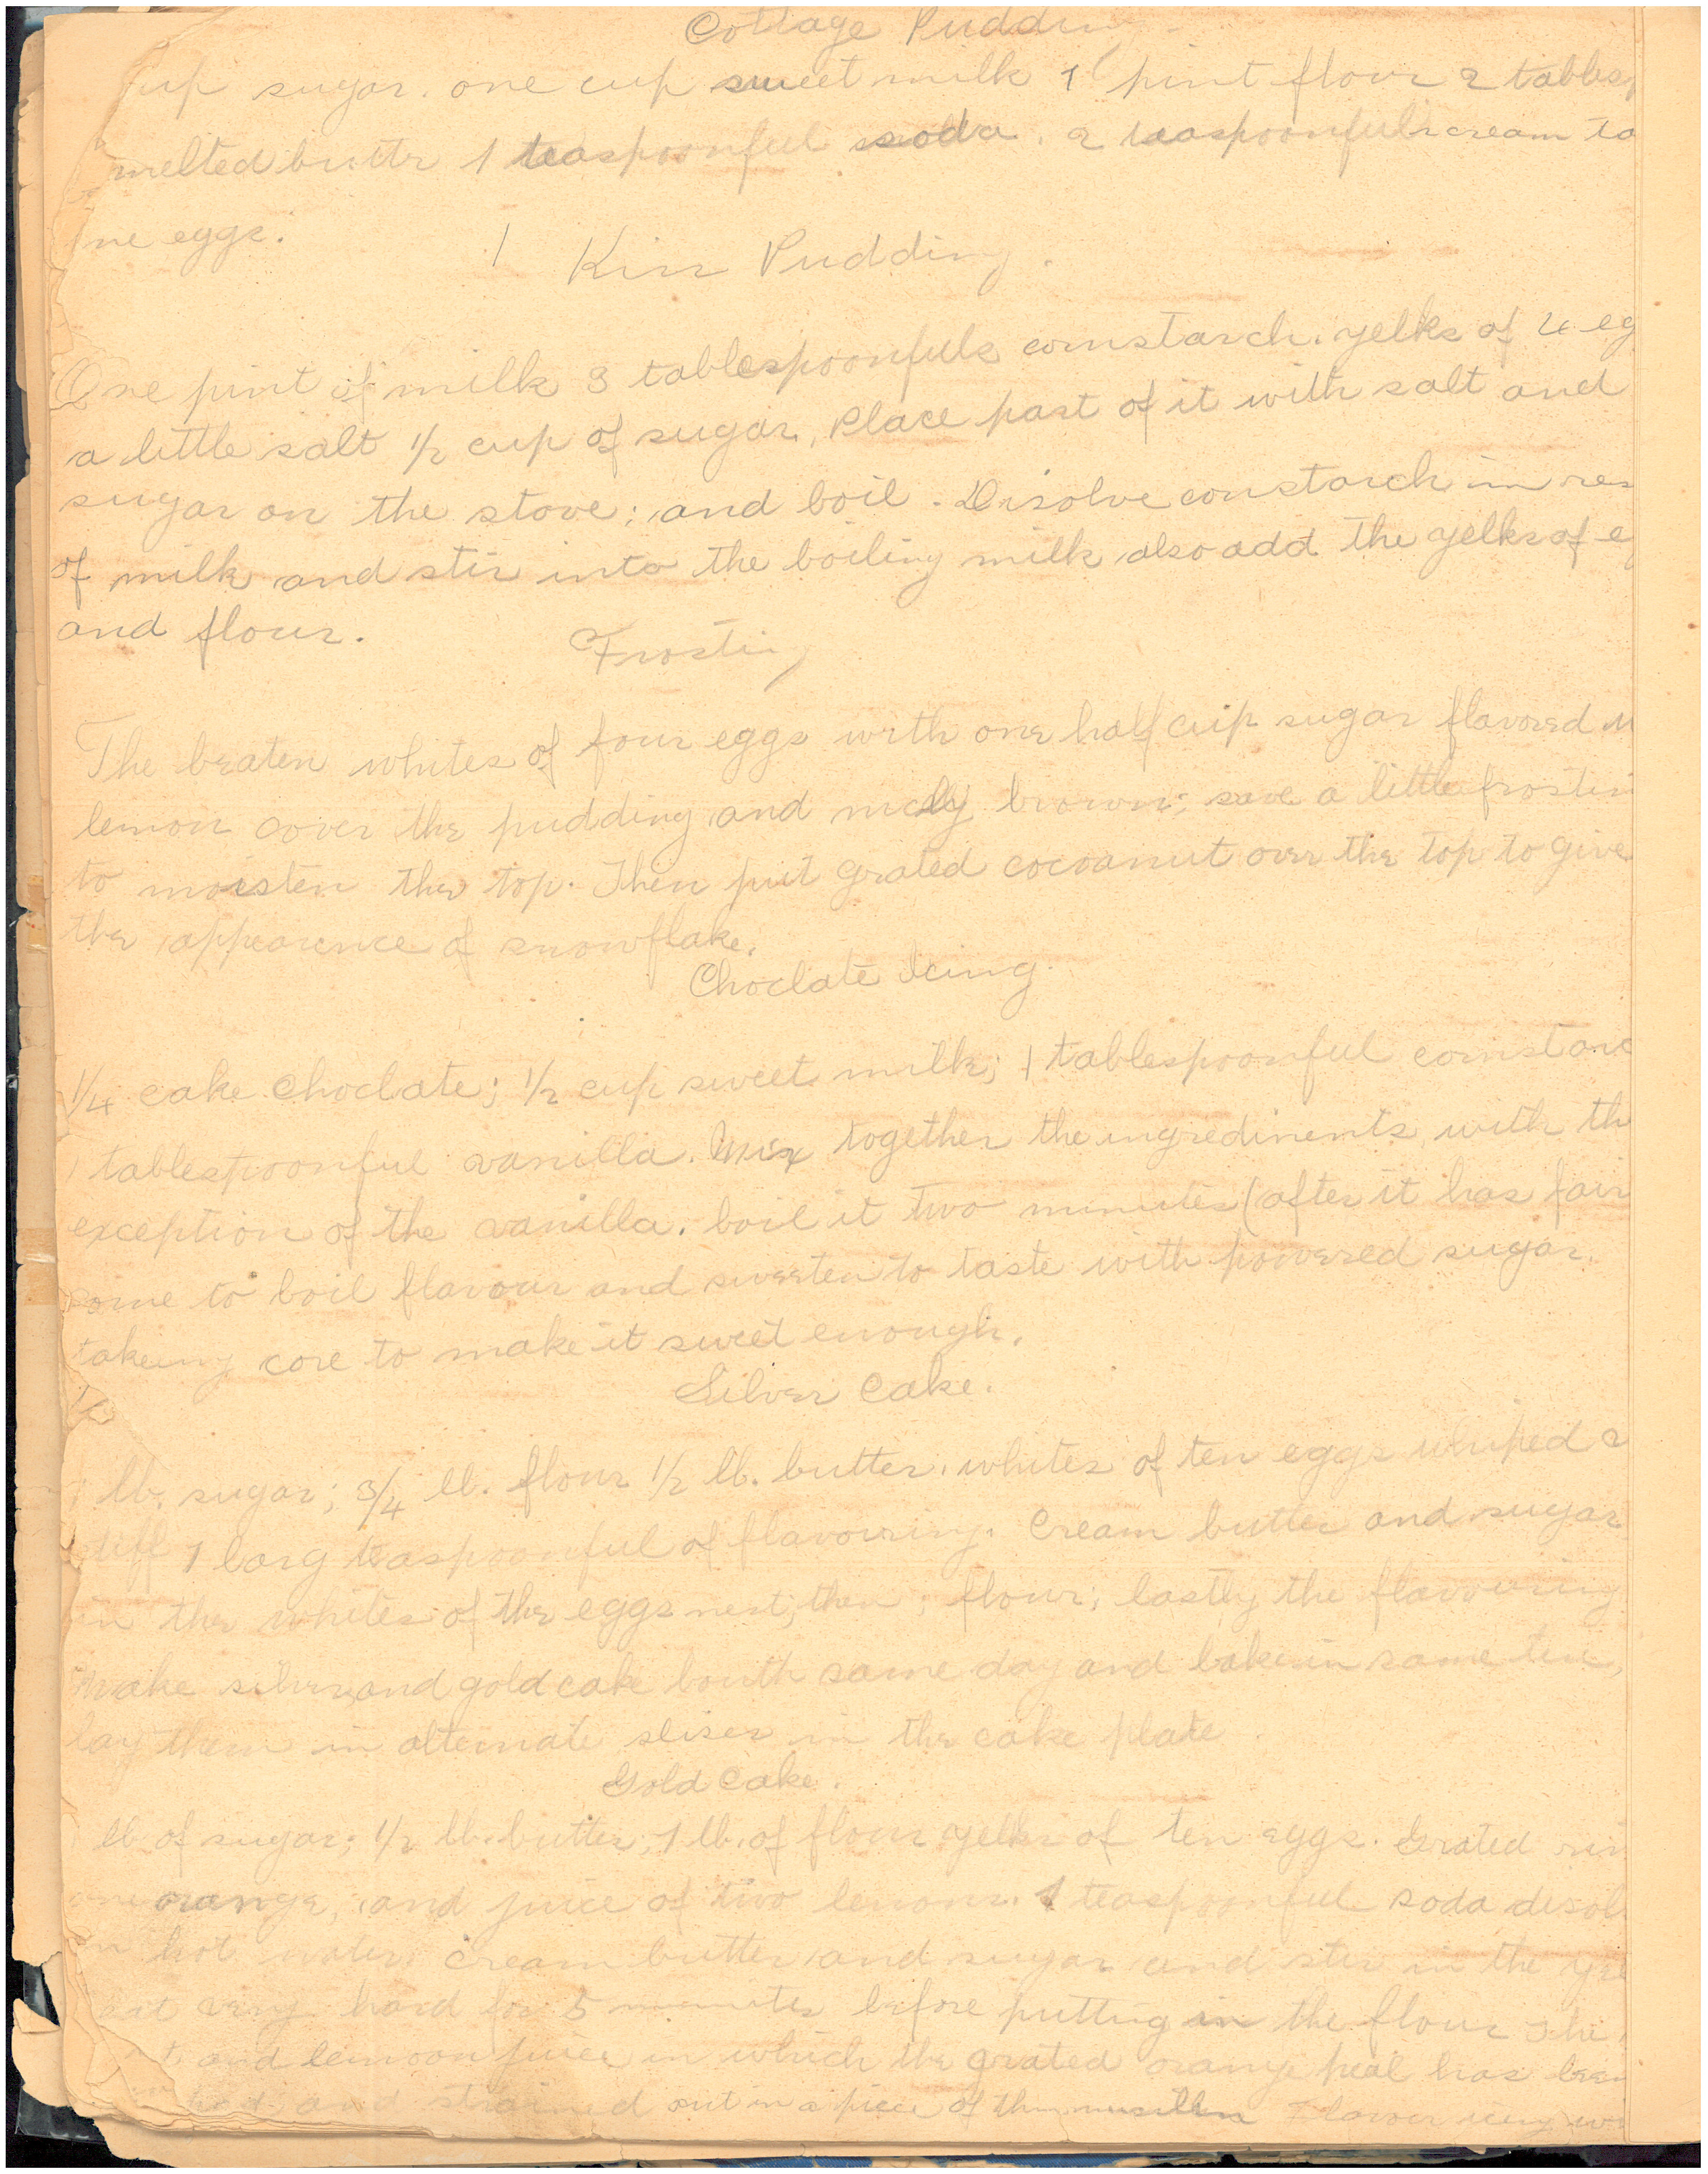 Cottage Puddin
cup sugar. one cup sweet milk 1 pint flour 2 tables
melted buttr 1 teaspoonful soda. 2 teaspoonfuls cream ta
ne eggs.
1 Kiss Pudding.
One pint of milk 3 tablespoonfuls cornstarch. yelks of 4 eg
a little salt 1/2 cup of sugar, Place part of it with salt and
sugar on the stove; and boil. Disolve constarch in res
of milk and stir into the boiling milk also add the yelks of e
and flour.
Frosting
The beaten whites of four eggs with one half cup sugar flavored w
lemon cover the pudding and nicely brown; save a little frostin
to moisten the top. Then put grated cocoanut over the top to give
the appearence of snowflake.
Choclate Icing.
1/4 cake choclate; 1/2 cup sweet milk; 1 tablespoonful cornstarc
1 tablespoonful vanilla. Mix together the ingredinents with th
exception of the vanilla. boil it two minutes (after it has fair
come to boil flavour and sweeten to taste with powered sugar.
takeing care to make it sweet enough.
Silver Cake.
lb. sugar; 3/4 lb. flour 1/2 lb. butter. whites of ten eggs whiped
stiff 1 larg teaspoonful of flavouring. Cream butter and sugar
in the whites of the eggs next; then; flour; lastly the flavouring
Make silver and gold cake bouth same day and bake in same tins,
lay them in alternate slises in the cake plate
Gold Cake.
lb of sugar; 1/2 lb. butter; 1 lb. of flour yelks of ten eggs. Grated rin
one orange, and juice of two lemons. 1 teaspoonful soda disol
in hot water. Cream butter and sugar and stir in the ye
eat very hard for 5 minutes before putting in the flour The
and lemoon juice in which the grated orange peal has been
and strained out in a piece of thin muslin Flavor very w